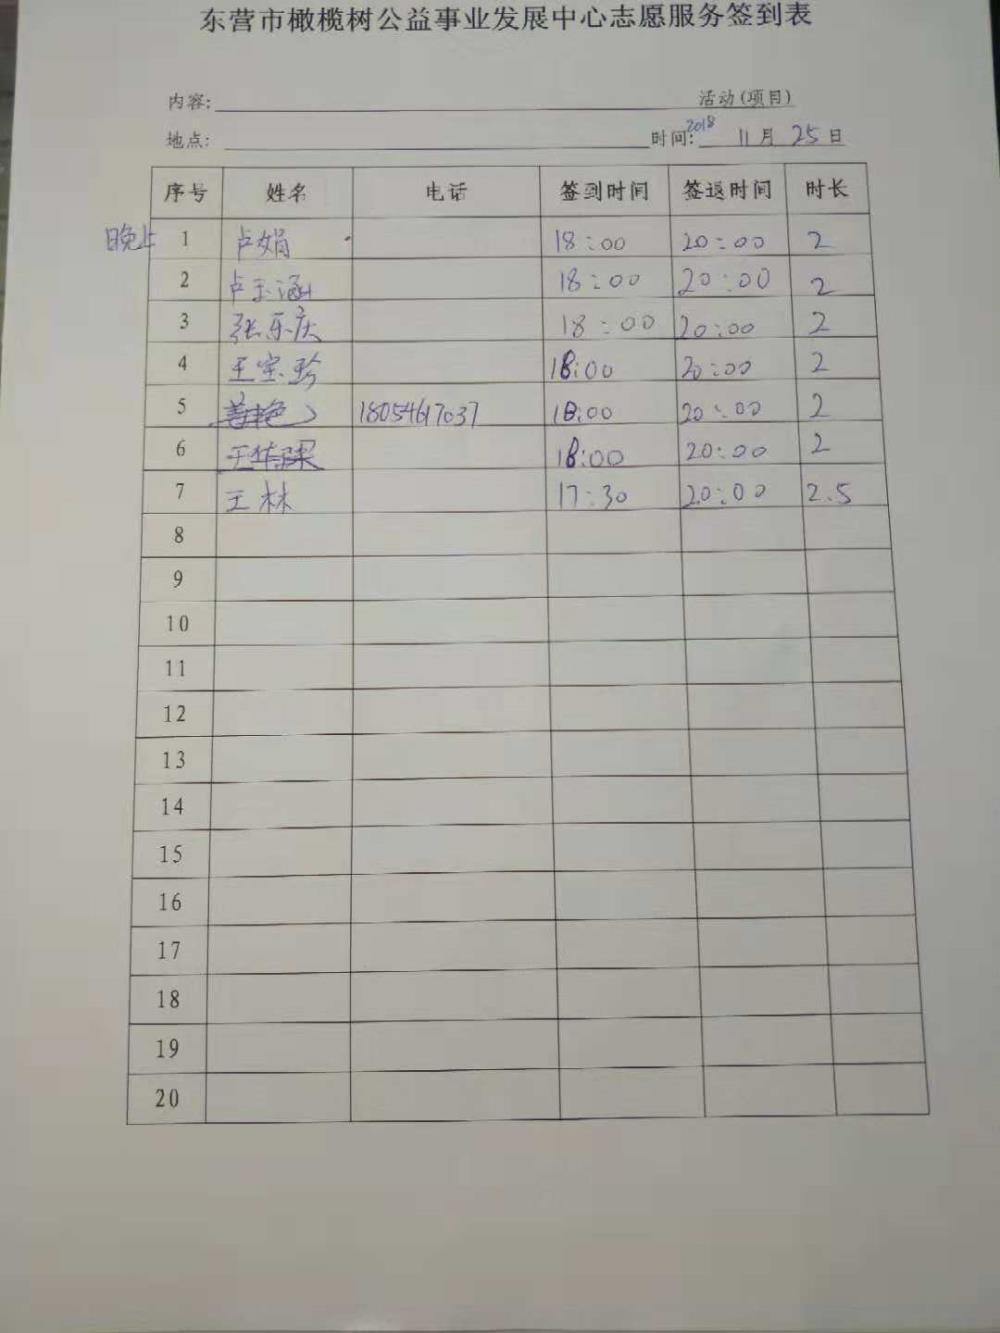 东营市橄榄树公益事业发展中心志愿服务签到表
内容: 活动(项目)
地点: 时间: 2018 11月 25日
序号 姓名 电话 签到时间 签退时间 时长
晚上 1 卢娟 18:00 20:00 2
2 卢玉涵 18:00 20:00 2
3 张乐庆 18:00 20:00 2
4 王宝珍 18:00 20:00 2
5 18054617037 18:00 20:00 2
6 18:00 20:00 2
7 王林 17:30 20:00 2.5
8
9
10
11
12
13
14
15
16
17
18
19
20